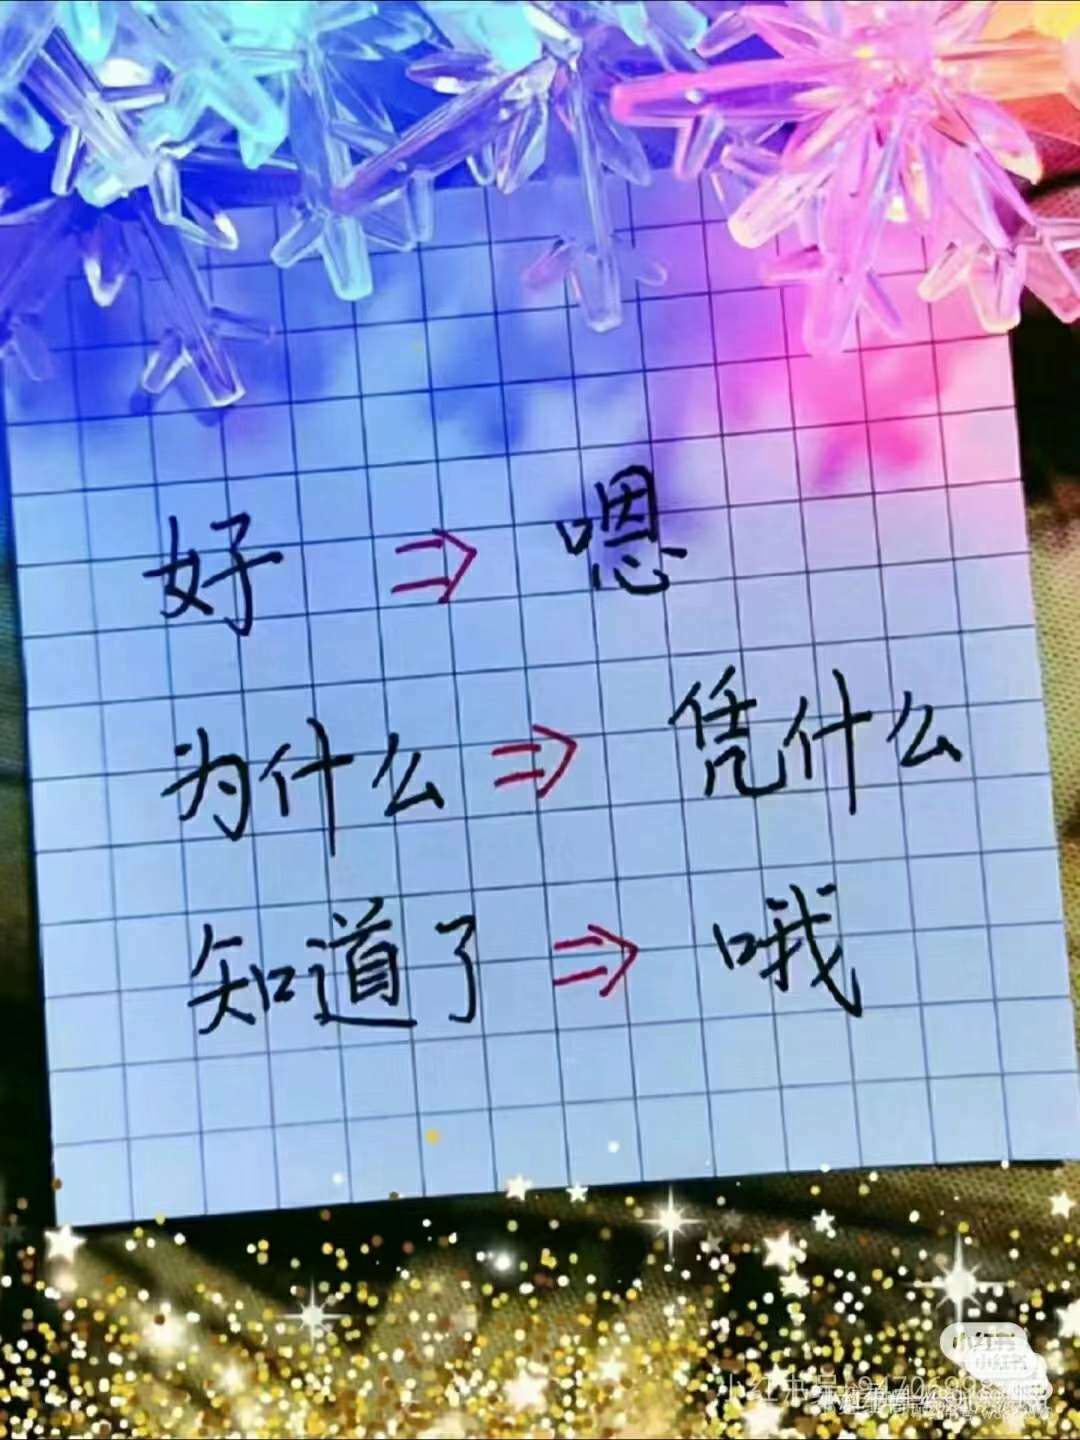 好 ⇒ 嗯
为什么 ⇒ 凭什么
知道了 ⇒ 哦
小红书
小红书